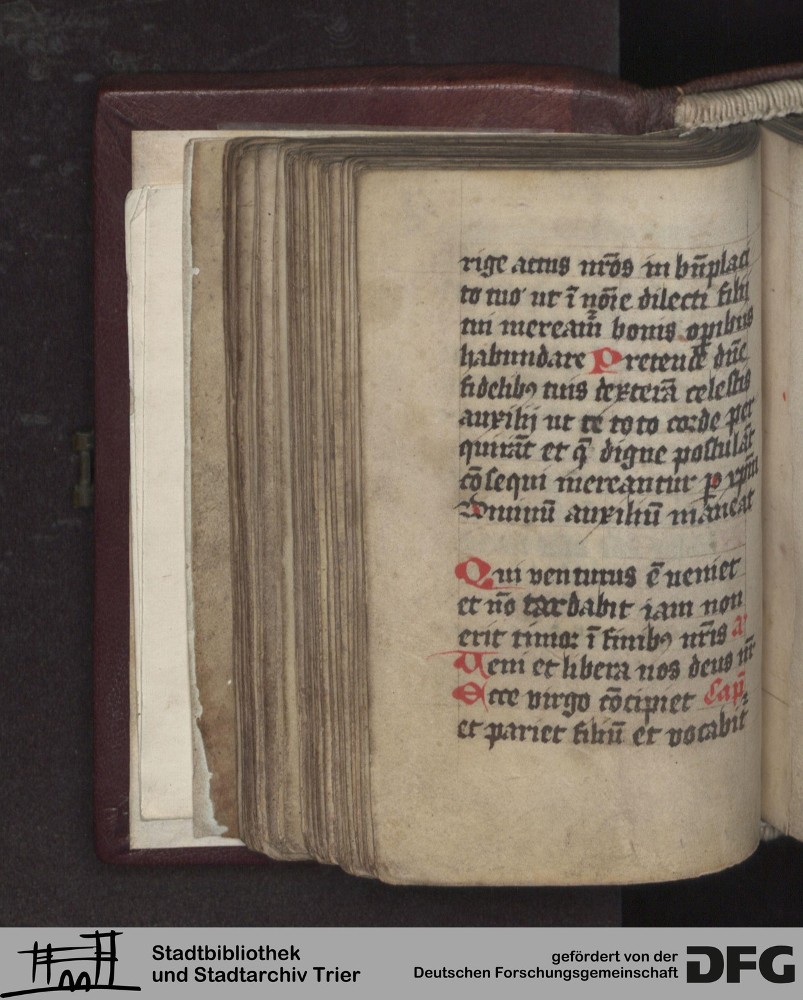 rige actus nr̄os in bn̄placi
to tuo ut ī nōīe dilecti filii
tui meream̄ bonis opibus
habundare Pretende dn̄e
fidelibꝯ tuis dexterā celestis
auxilij ut te toto corde per
quirāt et q̄ digne postulāt
cōsequi mereantur p xp̄m
Diuinū auxiliū maneat
Qui venturus ē ueniet
et nō tardabit iam non
erit timor ī finibꝯ nr̄is A
Veni et libera nos deus nr̄
Ecce virgo cōcipiet Cap̄
et pariet filiū et vocabit
Stadtbibliothek
und Stadtarchiv Trier
gefördert von der
Deutschen Forschungsgemeinschaft
DFG